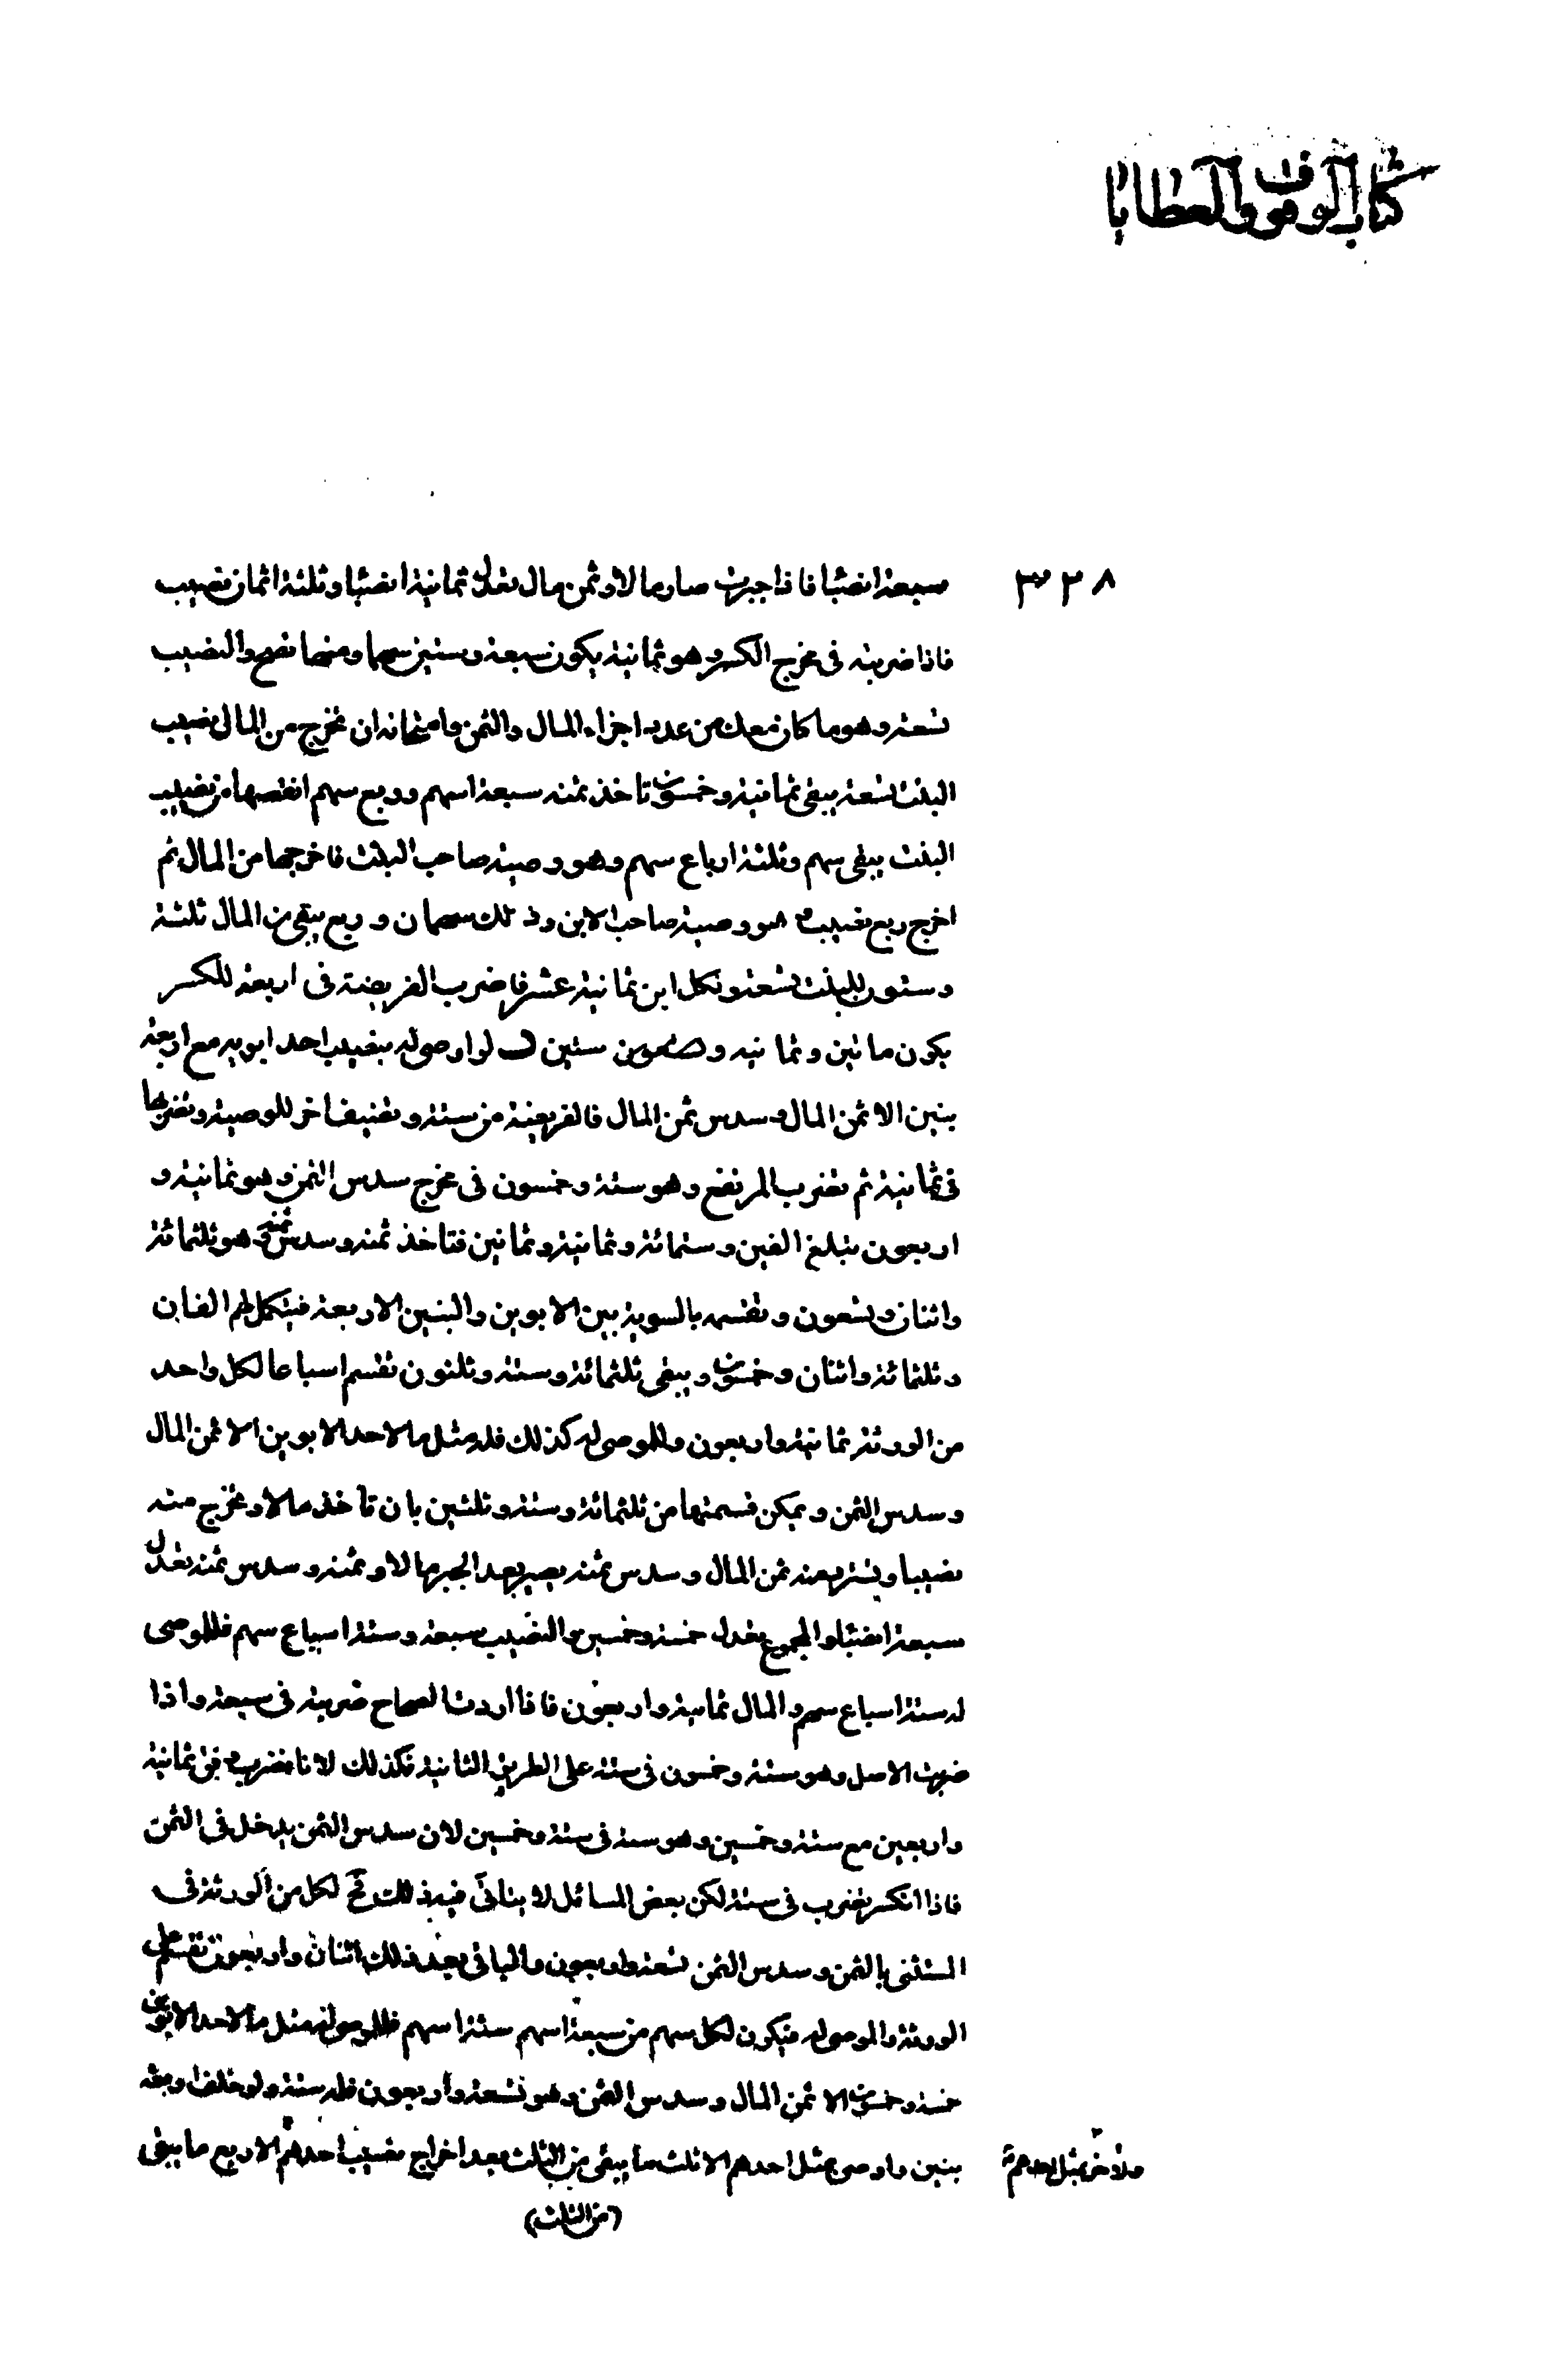 كتاب الوقوف والعطايا
٣٣٨
سبعة انصبا فاذا جبرت صار مالا وثمن مال تعدل ثمانية انصبا وثلثة اثمان نصيب
فاذا ضربته فى مخرج الكسر وهو ثمانية يكون سبعة وستين سهما ومنها تصح والنصيب
تسعة وهو ما كان معك من عدد اجزاء المال والثمن وامتحانه ان تخرج من المال نصيب
البنت تسعة يبقى ثمانية وخمسون تاخذ ثمنه سبعة اسهم وربع سهم انقصها من نصيب
البنت يبقى سهم وثلثة ارباع سهم وهو وصية صاحب البنت فاخرجها من المال ثم
اخرج ربع نصيب هو وصية صاحب الابن وذلك سهمان وربع يبقى من المال ثلثة
وستون للبنت تسعة ولكل ابن ثمانية عشر فاضرب الفريضة فى اربعة للكسر
يكون ماتين وثمانيه وستين لو اوصى له بنصيب احد ابويه مع اربعة
بنين الا ثمن المال وسدس ثمن المال فالفريضة من ستة وتضيف اخر للوصية وتضربها
فى ثمانية ثم تضرب المرتفع وهو ستة وخمسون فى مخرج سدس الثمن وهو ثمانية و
اربعون تبلغ الفين وستمائة وثمانية وثمانين فتاخذ ثمنه وسدس ثمنه وهو ثلثمائة
واثنان وتسعون وتقسمه بالسوية بين الابوين والبنين الاربعة فيتكمل لهم الفان
وثلثمائة واثنان وخمسون ويبقى ثلثمائة وستة وثلثون تقسم اسباعا لكل واحد
من الورثة ثمانية واربعون وللموصى له كذلك فله مثل ما لاحد الابوين الا ثمن المال
وسدس الثمن ويمكن قسمتها من ثلثمائة وستة وثلثين بان تاخذ مالا وتخرج منه
نصيبا وتسترجعه ثمن المال وسدس ثمنه يصير بعد الجبر مالا وثمنه وسدس ثمنه تعدل
سبعة انصبا والمجموع يعدل خمسة وخمسين والنصيب سبعة وستة اسباع سهم فللموصى
له ستة اسباع سهم والمال ثمانية واربعون فاذا اردت الصحاح ضربته فى سبعة واذا
ضربت الاصل وهو ستة وخمسون فى ستة على الطريق الثانية فكذلك لانا نضرب فى ثمانية
واربعين مع ستة وخمسين وهو ستة فى ستة وخمسين لان سدس الثمن يدخل فى الثمن
فاذا انكسر يضرب فى ستة لكن بعض المسائل لا يتاتى فيه ذلك فح لكل من الورثة فى
المستثنى بالثمن وسدس الثمن تسعة واربعون والباقى بعد ذلك اثنان واربعون تقسم على
الورثة والموصى له فيكون لكل سهم من سبعة اسهم ستة اسهم فللموصى له مثل ما لاحد الابوين
خمسة وخمسون الا ثمن المال وسدس الثمن وهو تسعة واربعون فله ستة ولو خلف اربعة
بنين واوصى بمثل احدهم الا ثلث ما يبقى من الثلث بعد اخراج نصيب احدهم الا ربع ما يبقى
ولاخر بمثل احدهم
(من الثلث)